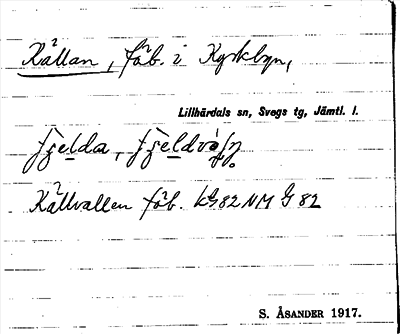 Källan, fäb. i Kyrkbyn,
Lillhärdals sn, Svegs tg, Jämtl. l.
Källvallen fäb. kG82 NM G 82
S. ÅSANDER 1917.